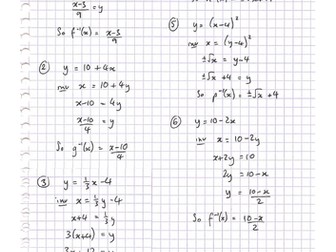 x-3/9 = y
So f⁻¹(x) = x-3/9
② y = 10 + 4x
inv x = 10 + 4y
x-10 = 4y
x-10/4 = y
So g⁻¹(x) = x-10/4
③ y = 1/3 x - 4
inv x = 1/3 y - 4
x+4 = 1/3 y
3(x+4) = y
⑤ y = (x-4)²
inv x = (y-4)²
±√x = y-4
±√x + 4 = y
So p⁻¹(x) = ±√x + 4
⑥ y = 10 - 2x
inv x = 10 - 2y
x+2y = 10
2y = 10-x
y = 10-x/2
So f⁻¹(x) = 10-x/2